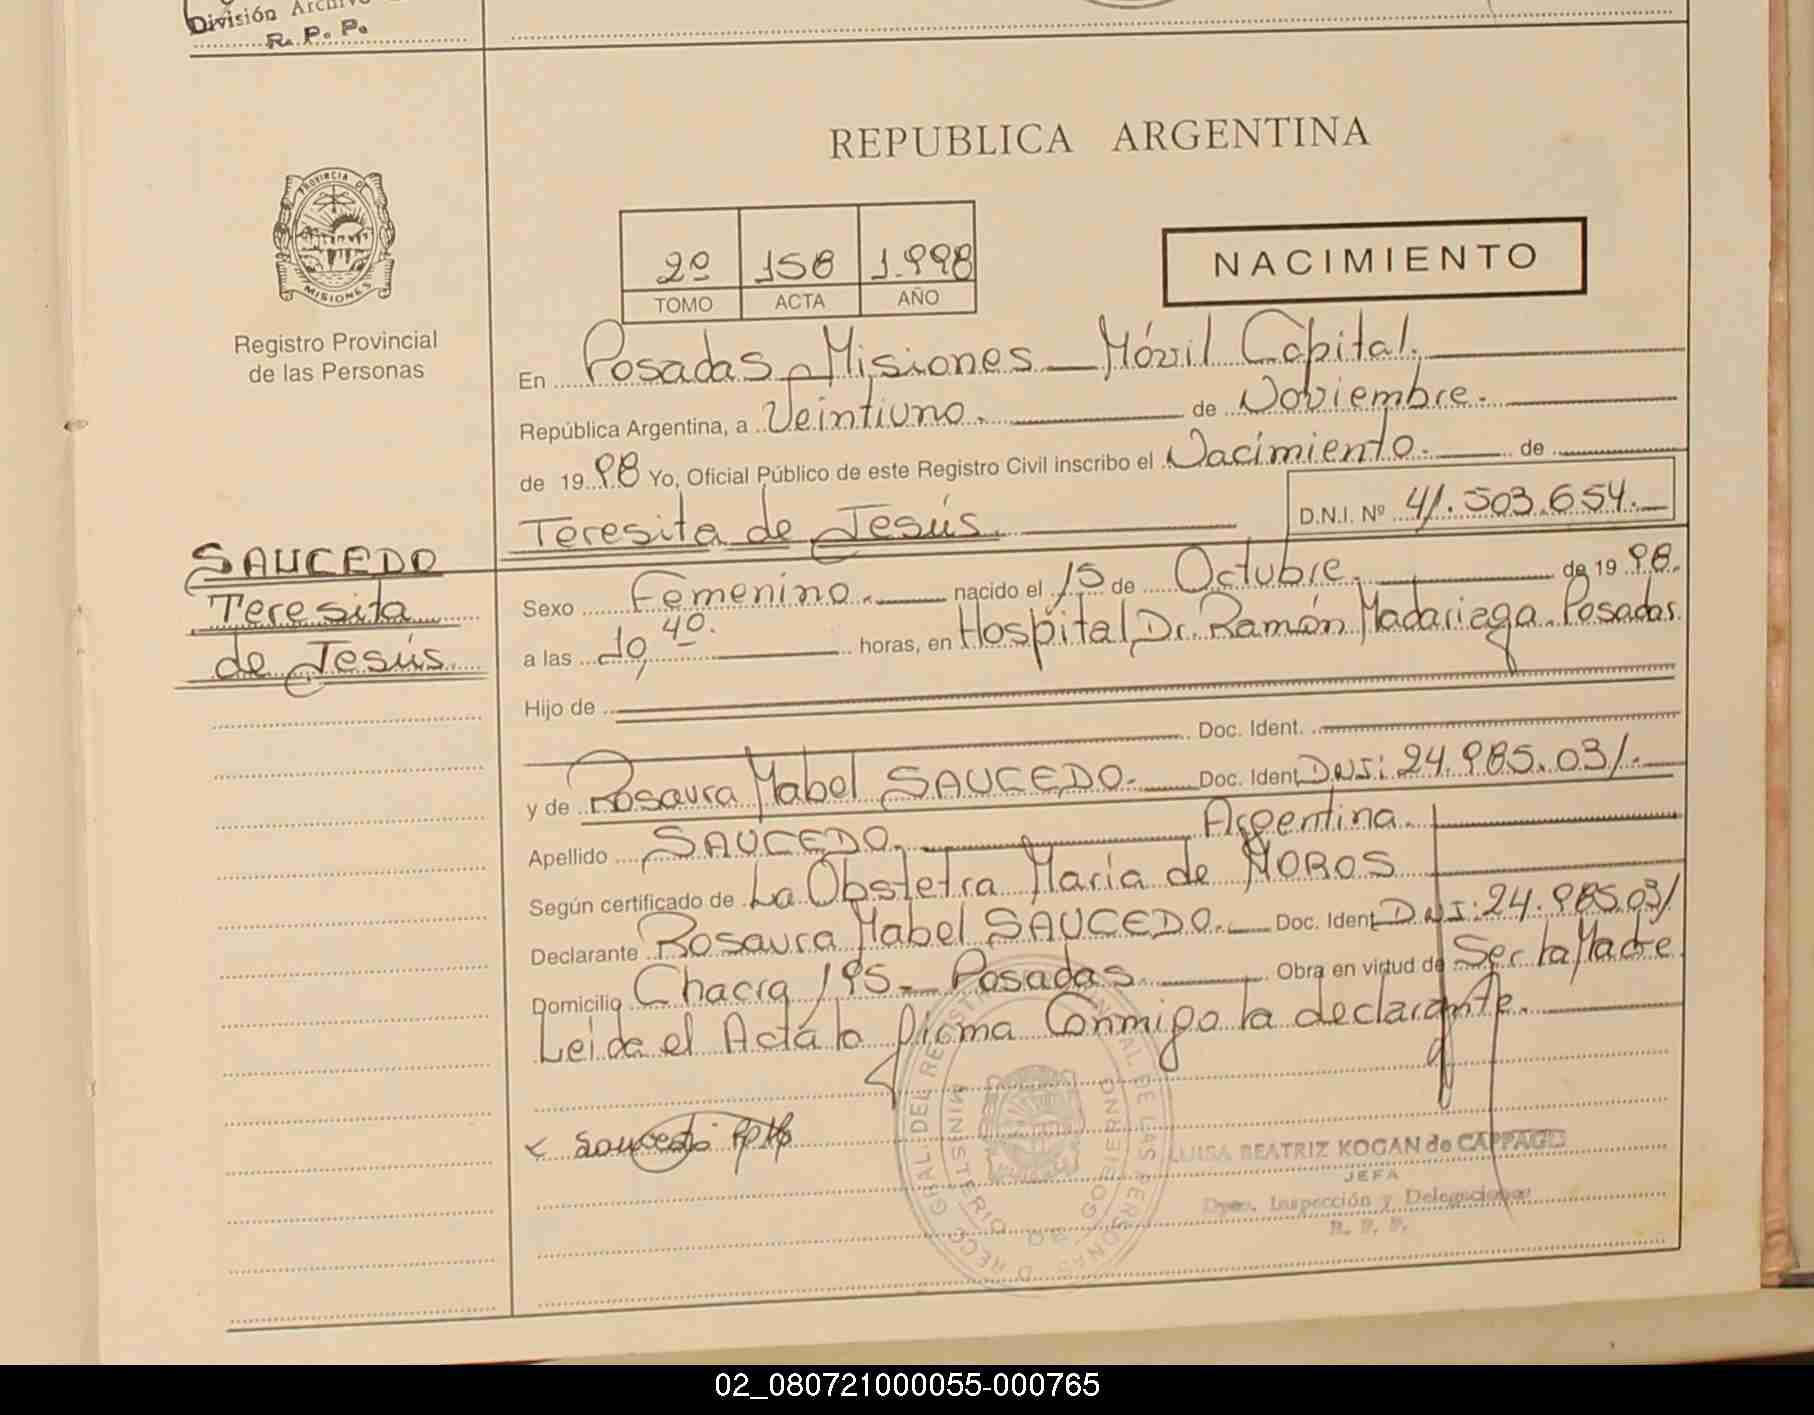 División Archivo
R. P. P.
REPUBLICA ARGENTINA
PROVINCIA DE
MISIONES
Registro Provincial
de las Personas
2º 158 1.998
TOMO ACTA AÑO
NACIMIENTO
En Posadas - Misiones - Móvil Capital.
República Argentina, a Veintiuno. de Noviembre.
de 19 98 Yo, Oficial Público de este Registro Civil inscribo el Nacimiento. de
Teresita de Jesús. D.N.I. Nº 41.503.654.
SAUCEDO
Teresita
de Jesús
Sexo Femenino. nacido el 15 de Octubre. de 19 98.
a las 10,40. horas, en Hospital Dr. Ramón Madariaga. Posadas.
Hijo de
Doc. Ident.
y de Rosaura Mabel SAUCEDO. Doc. Ident DNI: 24.985.031.
Apellido SAUCEDO. Argentina.
Según certificado de La Obstetra María de MOROS
Declarante Rosaura Mabel SAUCEDO. Doc. Ident DNI: 24.985.031
Domicilio Chacra 195 - Posadas. Obra en virtud de Ser la Madre.
Leida el Acta la firma Conmigo la declarante.
Saucedo
LUISA BEATRIZ KOGAN de CAPPAGLI
JEFA
Dpto. Inspección y Delegaciones
R. P. P.
02_080721000055-000765